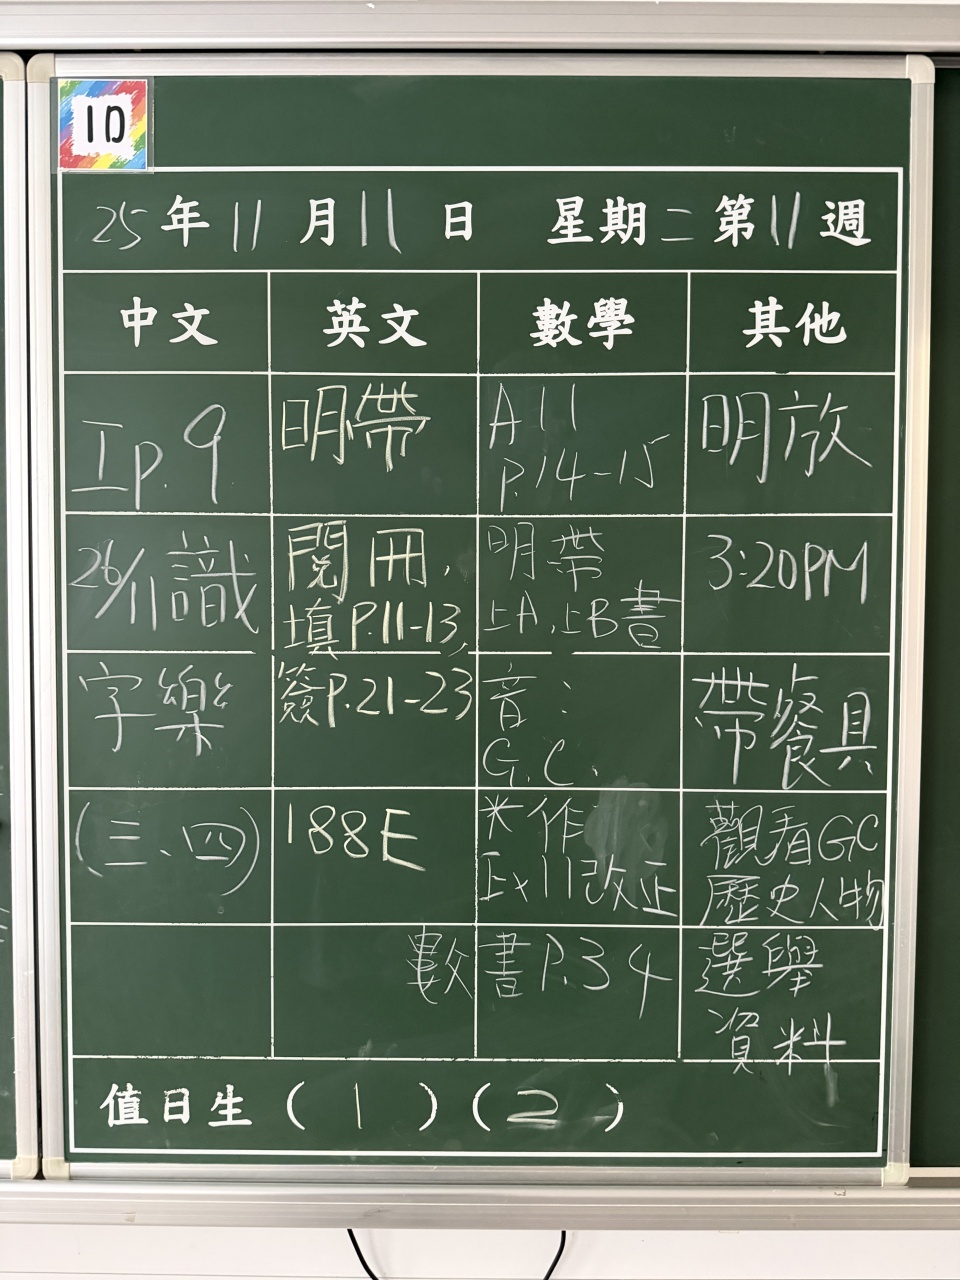 1D
25年11月11日 星期二第11週
中文 英文 數學 其他
工p.9
26/11識
字樂
(三、四)
明帶
閱冊,
填P.11-13,
簽P.21-23
188E
A11
P.14-15
明帶
上A,上B書
音:
G.C.
米作
Ex11改正
數書P.34
明放
3:20PM
帶餐具
觀看GC
歷史人物
選舉
資料
值日生(1)(2)